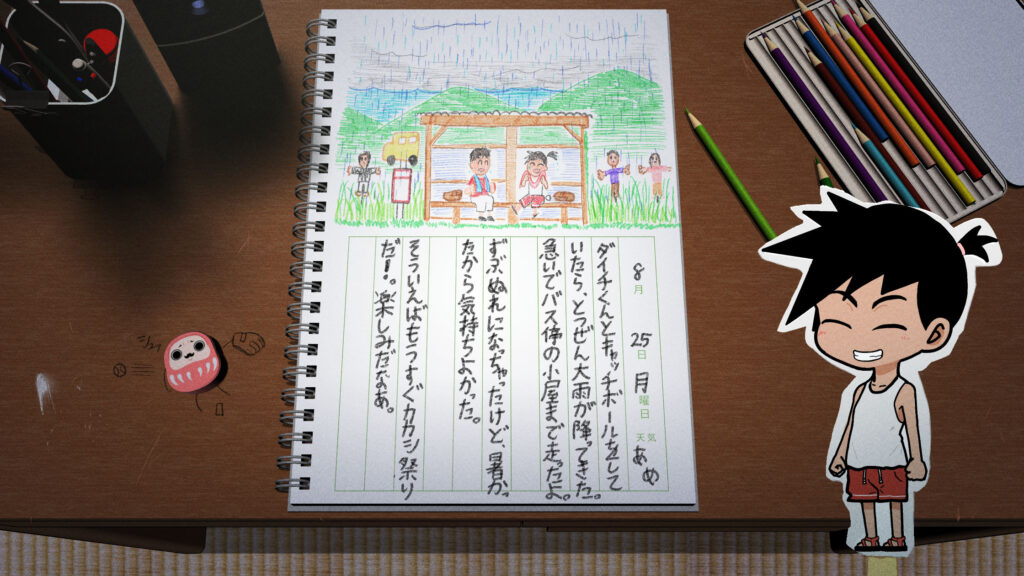 8月25日月曜日天気あめ
ダイチくんとキャッチボールをして
いたら、とつぜん大雨が降ってきた。
急いでバス停の小屋まで走ったよ。
ずぶぬれになっちゃったけど、暑かっ
たから気持ちよかった。
そういえばもうすぐカカシ祭り
だ！。楽しみだなあ。